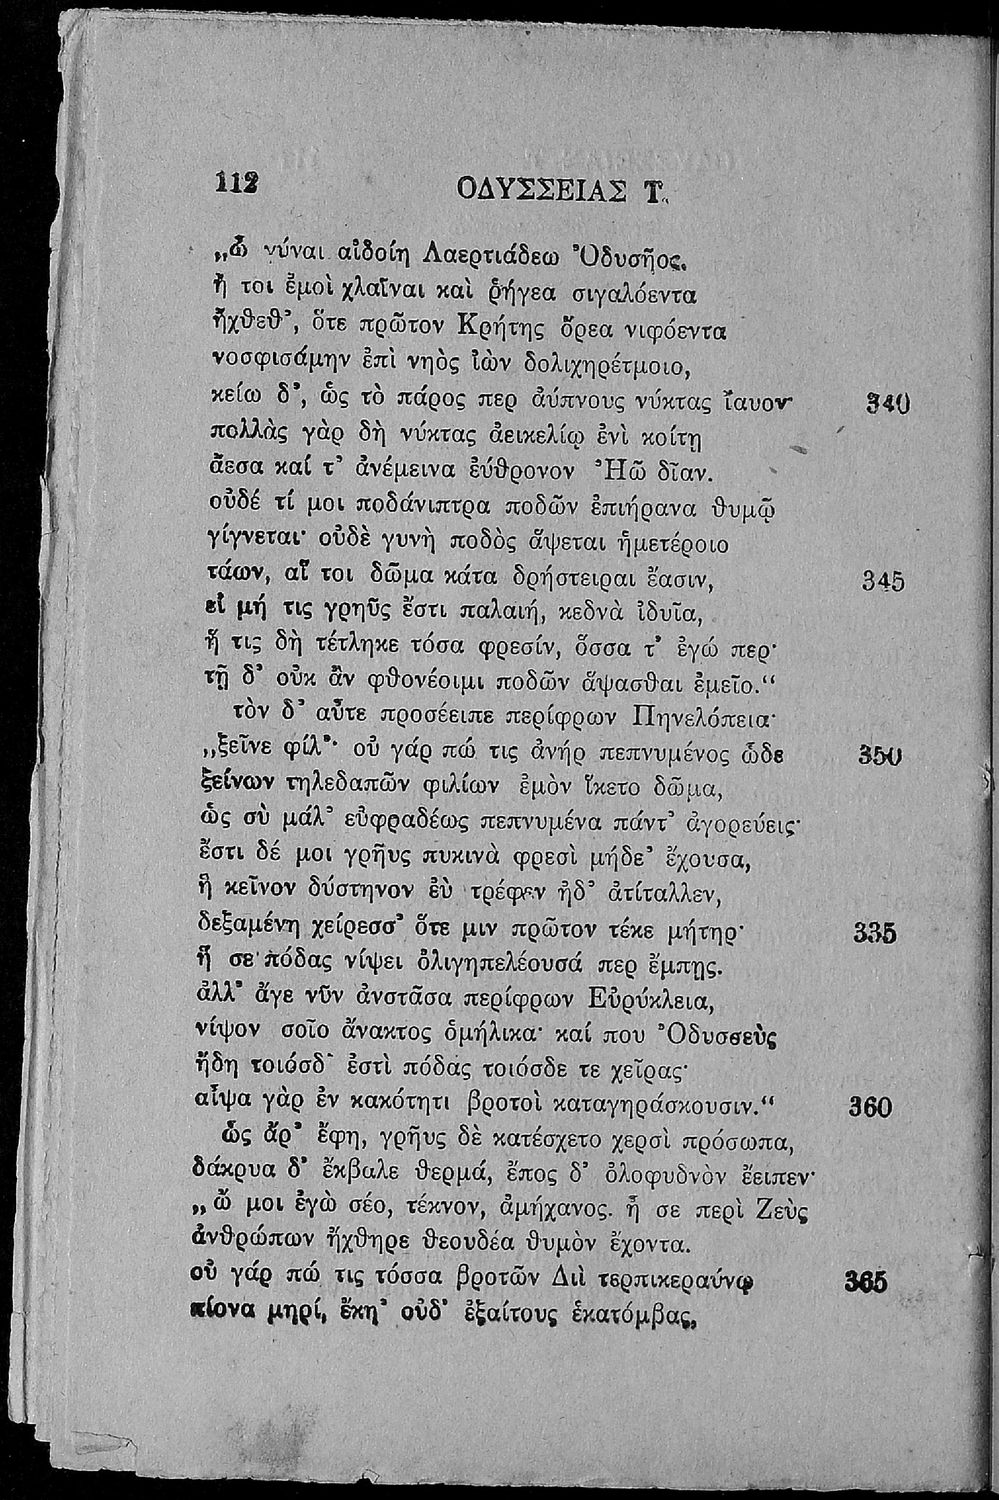 112
ΟΔΥΣΣΕΙΑΣ Τ.
„ὦ γύναι αἰδοίη Λαερτιάδεω Ὀδυσῆος,
ἦ τοι ἐμοὶ χλαῖναι καὶ ῥήγεα σιγαλόεντα
ἤχθεθ’, ὅτε πρῶτον Κρήτης ὄρεα νιφόεντα
νοσφισάμην ἐπὶ νηὸς ἰὼν δολιχηρέτμοιο,
κείω δ’, ὡς τὸ πάρος περ ἀύπνους νύκτας ἴαυον· 340
πολλὰς γὰρ δὴ νύκτας ἀεικελίῳ ἐνὶ κοίτῃ
ἄεσα καί τ’ ἀνέμεινα ἐύθρονον Ἠῶ δῖαν.
οὐδέ τί μοι ποδάνιπτρα ποδῶν ἐπιήρανα θυμῷ
γίγνεται· οὐδὲ γυνὴ ποδὸς ἅψεται ἡμετέροιο
τάων, αἵ τοι δῶμα κάτα δρήστειραι ἔασιν, 345
εἰ μή τις γρηῦς ἔστι παλαιή, κεδνὰ ἰδυῖα,
ἥ τις δὴ τέτληκε τόσα φρεσίν, ὅσσα τ’ ἐγώ περ·
τῇ δ’ οὐκ ἂν φθονέοιμι ποδῶν ἅψασθαι ἐμεῖο.“
τὸν δ’ αὖτε προσέειπε περίφρων Πηνελόπεια·
„ξεῖνε φίλ’· οὐ γάρ πώ τις ἀνὴρ πεπνυμένος ὧδε 350
ξείνων τηλεδαπῶν φιλίων ἐμὸν ἵκετο δῶμα,
ὡς σὺ μάλ’ εὐφραδέως πεπνυμένα πάντ’ ἀγορεύεις·
ἔστι δέ μοι γρῆυς πυκινὰ φρεσὶ μήδε’ ἔχουσα,
ἣ κεῖνον δύστηνον ἐὺ τρέφεν ἠδ’ ἀτίταλλεν,
δεξαμένη χείρεσσ’ ὅτε μιν πρῶτον τέκε μήτηρ· 335
ἥ σε πόδας νίψει ὀλιγηπελέουσά περ ἔμπης.
ἀλλ’ ἄγε νῦν ἀνστᾶσα περίφρων Εὐρύκλεια,
νίψον σοῖο ἄνακτος ὁμήλικα· καί που Ὀδυσσεὺς
ἤδη τοιόσδ’ ἐστὶ πόδας τοιόσδε τε χεῖρας·
αἶψα γὰρ ἐν κακότητι βροτοὶ καταγηράσκουσιν.“ 360
ὣς ἄρ’ ἔφη, γρῆυς δὲ κατέσχετο χερσὶ πρόσωπα,
δάκρυα δ’ ἔκβαλε θερμά, ἔπος δ’ ὀλοφυδνὸν ἔειπεν·
„ὤ μοι ἐγὼ σέο, τέκνον, ἀμήχανος. ἦ σε περὶ Ζεὺς
ἀνθρώπων ἤχθηρε θεουδέα θυμὸν ἔχοντα.
οὐ γάρ πώ τις τόσσα βροτῶν Διὶ τερπικεραύνῳ 365
πίονα μηρί’ ἔκη’ οὐδ’ ἐξαίτους ἑκατόμβας,